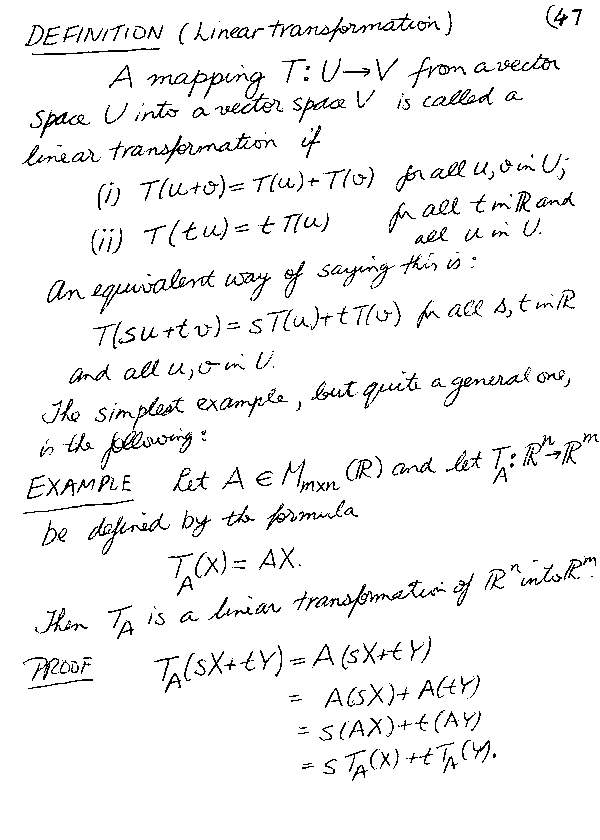 DEFINITION (Linear transformation) (47
A mapping T: U→V from a vector
space U into a vector space V is called a
linear transformation if
(i) T(u+v)= T(u)+T(v) for all u,v in U;
(ii) T(tu)= t T(u) for all t in ℝ and
all u in U.
An equivalent way of saying this is:
T(su+tv)= sT(u)+tT(v) for all s,t in ℝ
and all u,v in U.
The simplest example, but quite a general one,
is the following:
EXAMPLE Let A ∈ M_{m×n}(ℝ) and let T_A: ℝ^n→ℝ^m
be defined by the formula
T_A(X)= AX.
Then T_A is a linear transformation of ℝ^n into ℝ^m.
PROOF T_A(sX+tY)= A(sX+tY)
= A(sX)+A(tY)
= s(AX)+t(AY)
= s T_A(X)+t T_A(Y).